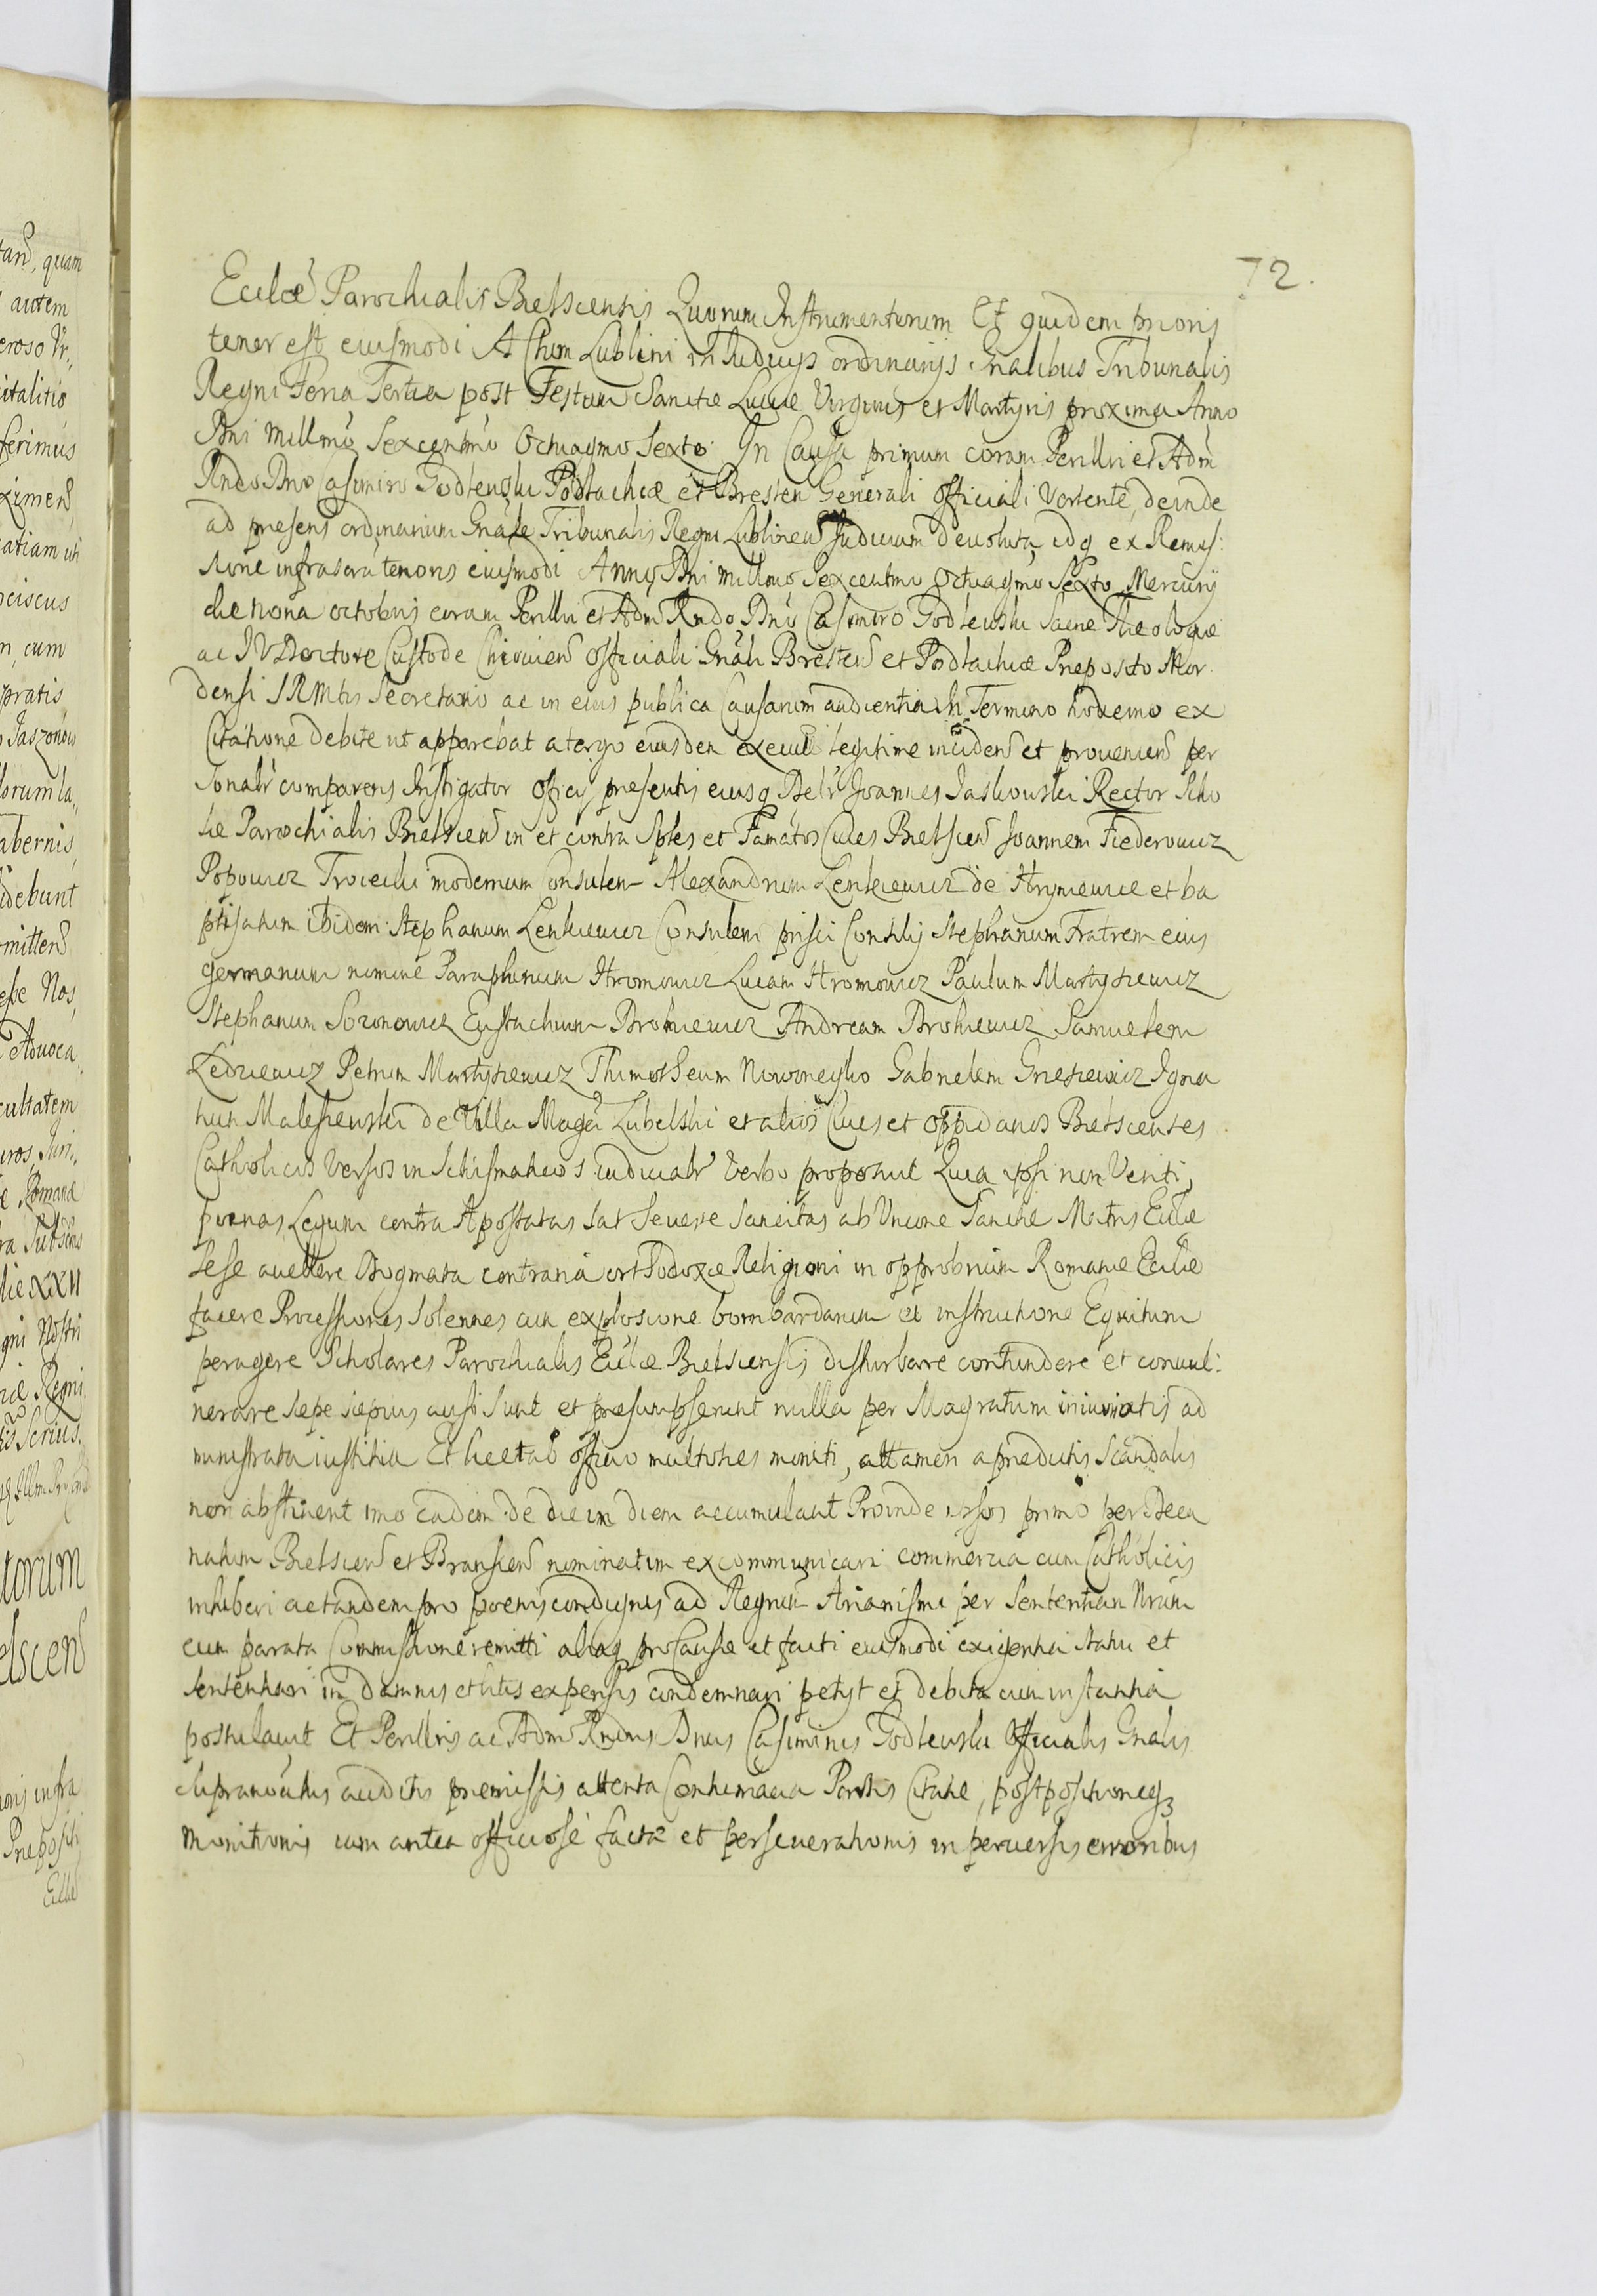 72.
Eccl͞æ Parochialis Bielscensis Quorum Instrumentorum Et quidem prioris
tenor est eiusmodi Actum Lublini in Iudicijs ordinarijs Gnalibus Tribunalis
Regni Feria Tertia post Festum Sanctæ Luciæ Virginis et Martyris proxima Anno
Dni Millmo Sexcentmo Octuagmo Sexto In Causa primum coram Perillri et Adm
Rndo Dno Casimiro Godlewski Podlachiæ et Bresten Generali Officiali Vertente, deinde
ad præsens ordinarium Gnale Tribunalis Regni Lublinen Iudicium deuoluta idq ex Remis:
sione infrascra tenoris eiusmodi Anno Dni Millmo Sexcentmo Octuagmo Sexto Mercurij
die nona octobris coram Perillri et Adm Rndo Dno Casimiro Godlewski Sacræ Theologiæ
ac IVDoctore Custode Chiouien Officiali Gnali Bresten et Podlachiæ Preposito Mor
densi SRMtis Secretario ac in eius publica Causarum audientia In Termino hodierno ex
Citatione debite ut apparebat a tergo eiusdem execut legitime inciden et prouenien per
sonalr comparens Instigator Officij presentis eiusq Delr Joannes Jastkowski Rector Scho
læ Parochialis Bielscen in et contra Sptes et Famatos Ciues Bielscen Joannem Fiederowicz
Popowicz Trociecki modernum Consulem Alexandrum Lenkiewicz de Hryniewicze et ba
ptisatum ibidem Stephanum Lenkiewicz Consulem prisci Consilij Stephanum Fratrem eius
germanum nomine Paraphinum Hromowicz Lucam Hromowicz Paulum Martysiewicz
Stephanum Sozonowicz Eustachium Brohiewicz Andream Brohiewicz Samuelem
Ledziewicz Petrum Martysiewicz Thimotheum Nowoneyko Gabrielem Griesiewicz Igna
tium Malesiewski de Villa Maga Lubelski et alios Ciues et oppidanos Bielscenses
Catholicos Versos in Schismaticos iudicialr Verbo proposuit Quia ipsi non Veriti,
poenas Legum contra Apostatas Sat Seuere Sancitas ab Vnione Sanctæ Matris Ecclæ
sese auellere Dogmata contraria orthodoxæ Religioni in opprobrium Romanæ Ecclæ
facere Processiones Solennes cum explosione bombardarum et instructione Equitum
peragere Scholares Parochialis Ecclæ Bielscensis disturbare contundere et conuul:
nerare sæpe sæpius ausi sunt et præsumpserunt nulla per Magratum iniuriatis ad
ministrata iustitia Et licet ab officio multoties moniti, attamen a prædictis Scandalis
non abstinent imo eadem de die in diem accumulant Proinde ipsos primo per Deca
natum Bielscen et Bransken nominatim excommunicari commercia cum Catholicis
inhiberi ac tandem pro poenis condignis ad Regnum Arianismi per Sententiam Nram
cum parata Commissione remitti aliaq pro Causæ et facti eiusmodi exigentia statui et
sententiari in damnis et litis expensis condemnari petijt et debita cum instantia
postulauit Et Perillris ac Adm Rndus Dnus Casimirus Godlewski Officialis Gnalis
supranotatus auditis premissis attenta Contumacia Partis Citatæ, postpositioneq3
monitionis iam antea officiose factæ et perseuerationis in peruersis erroribus